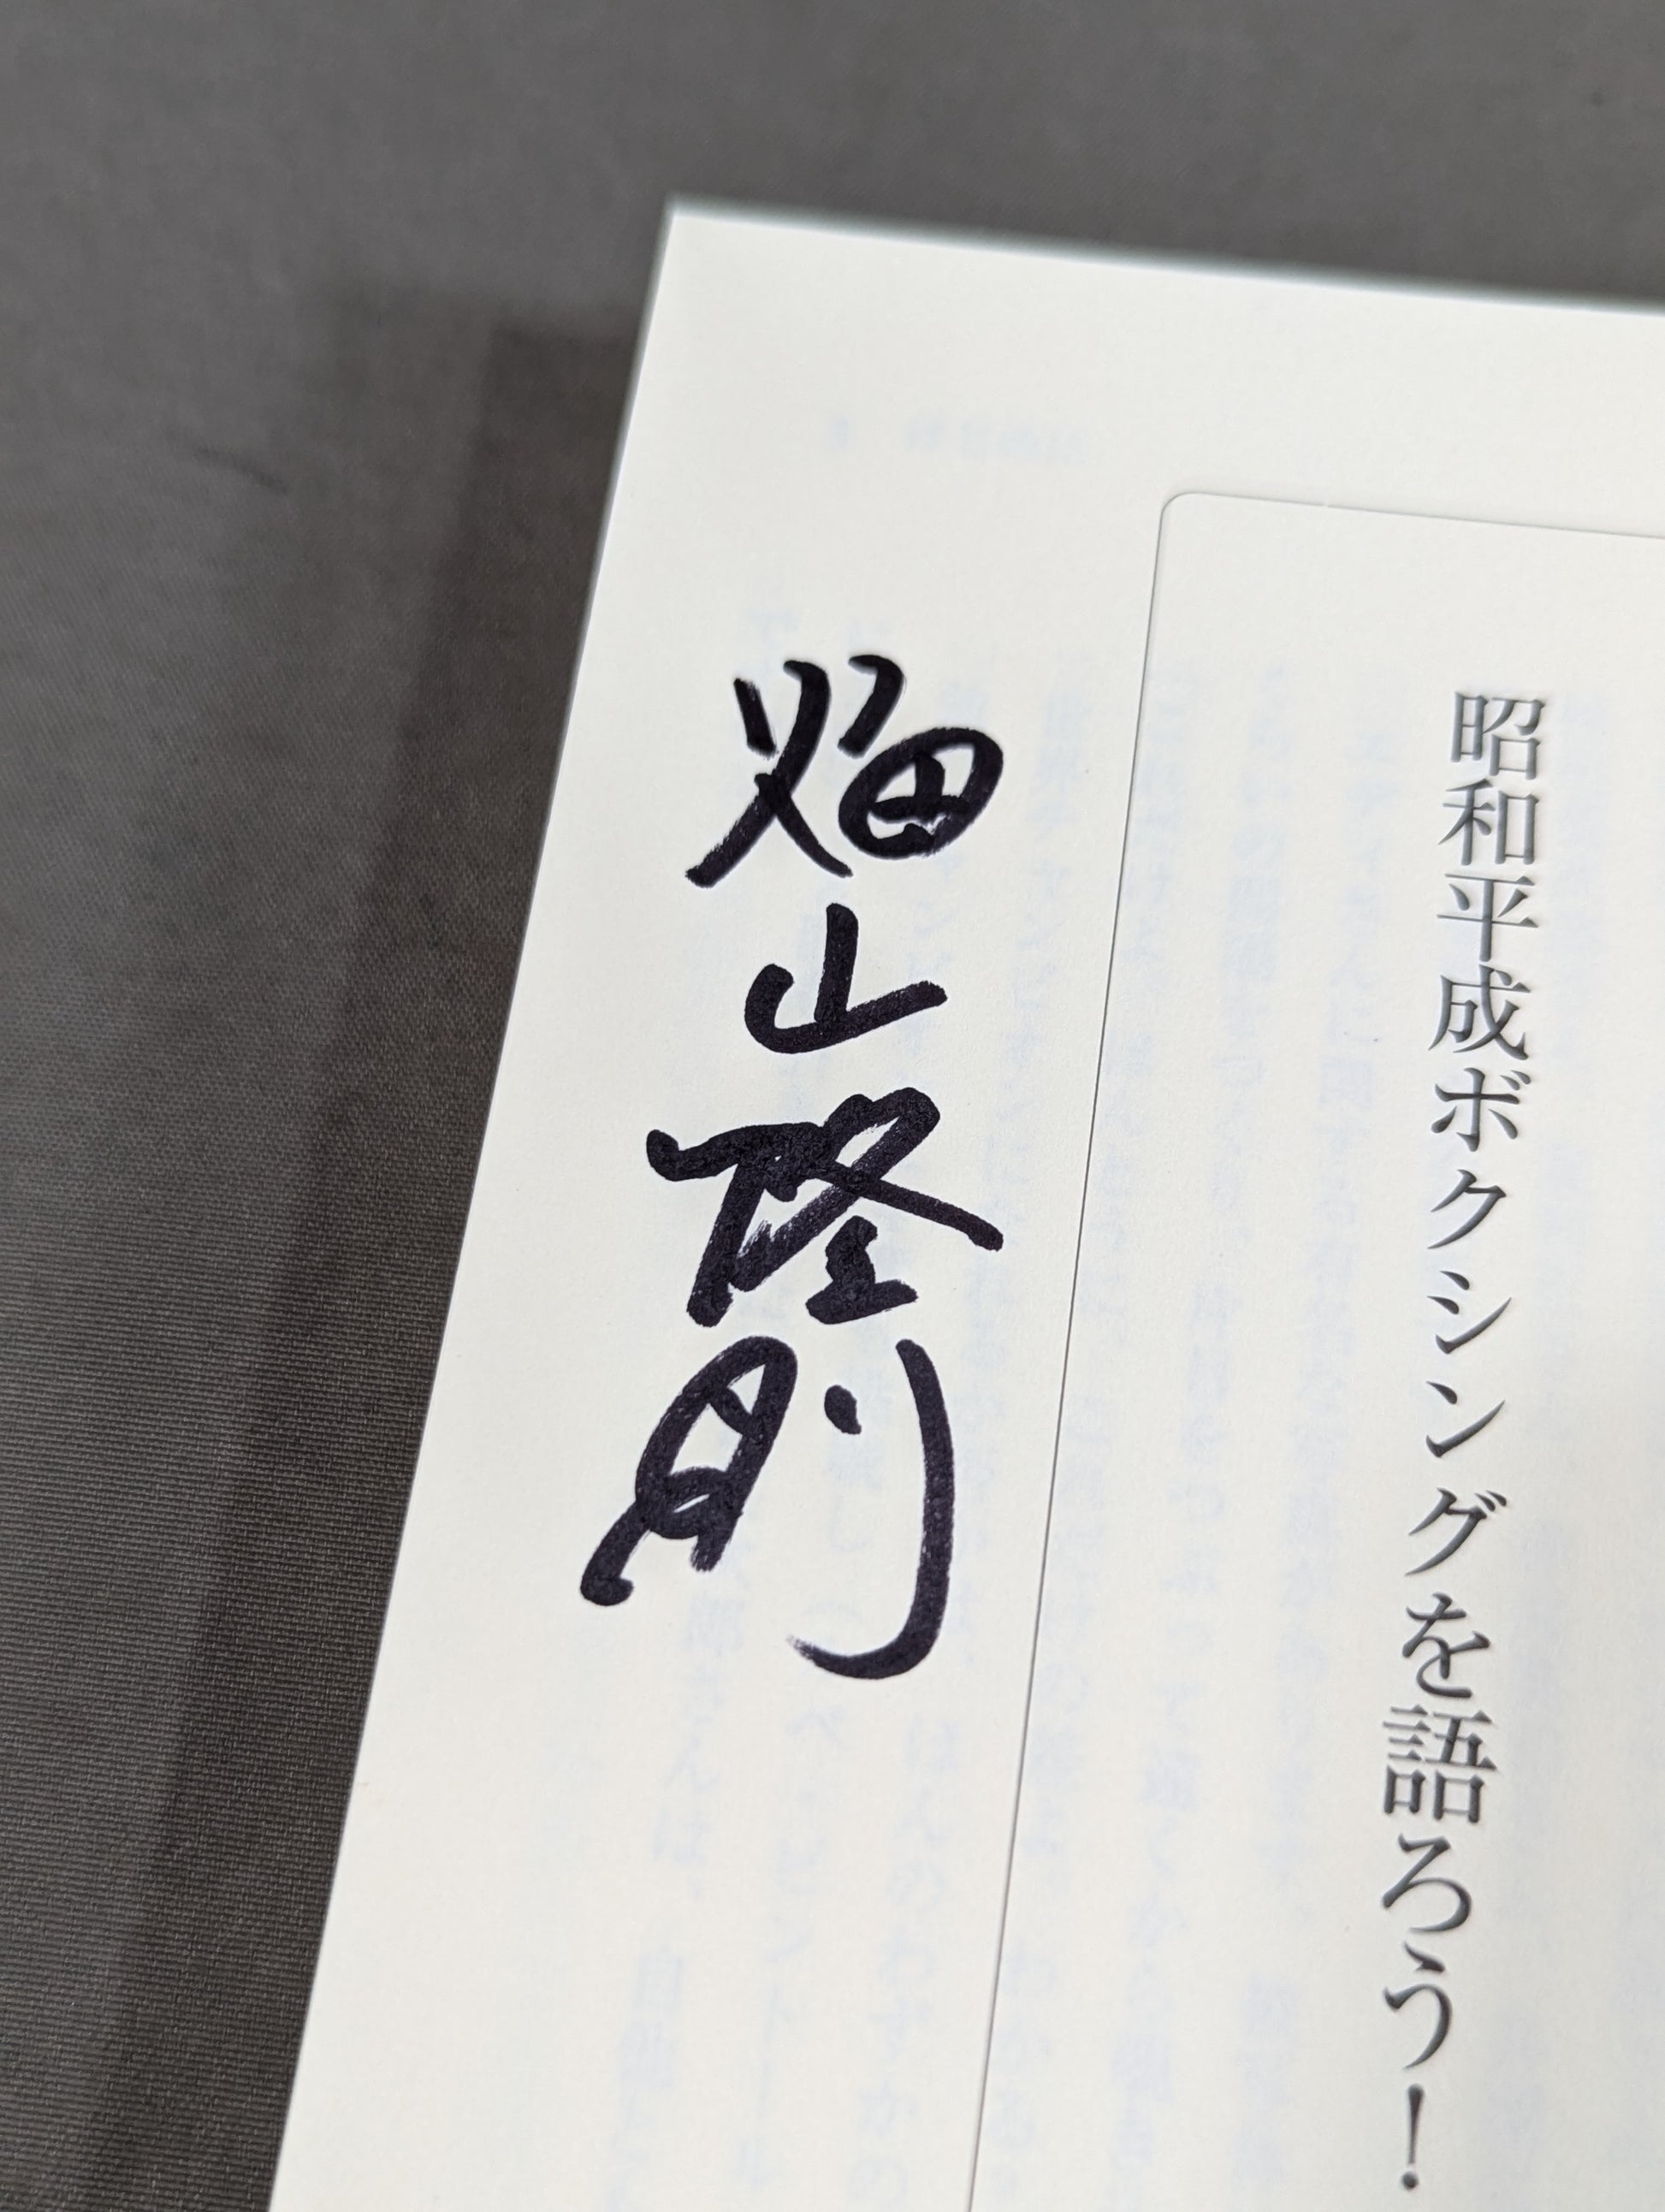 昭和平成ボクシングを語ろう!
畑山隆則